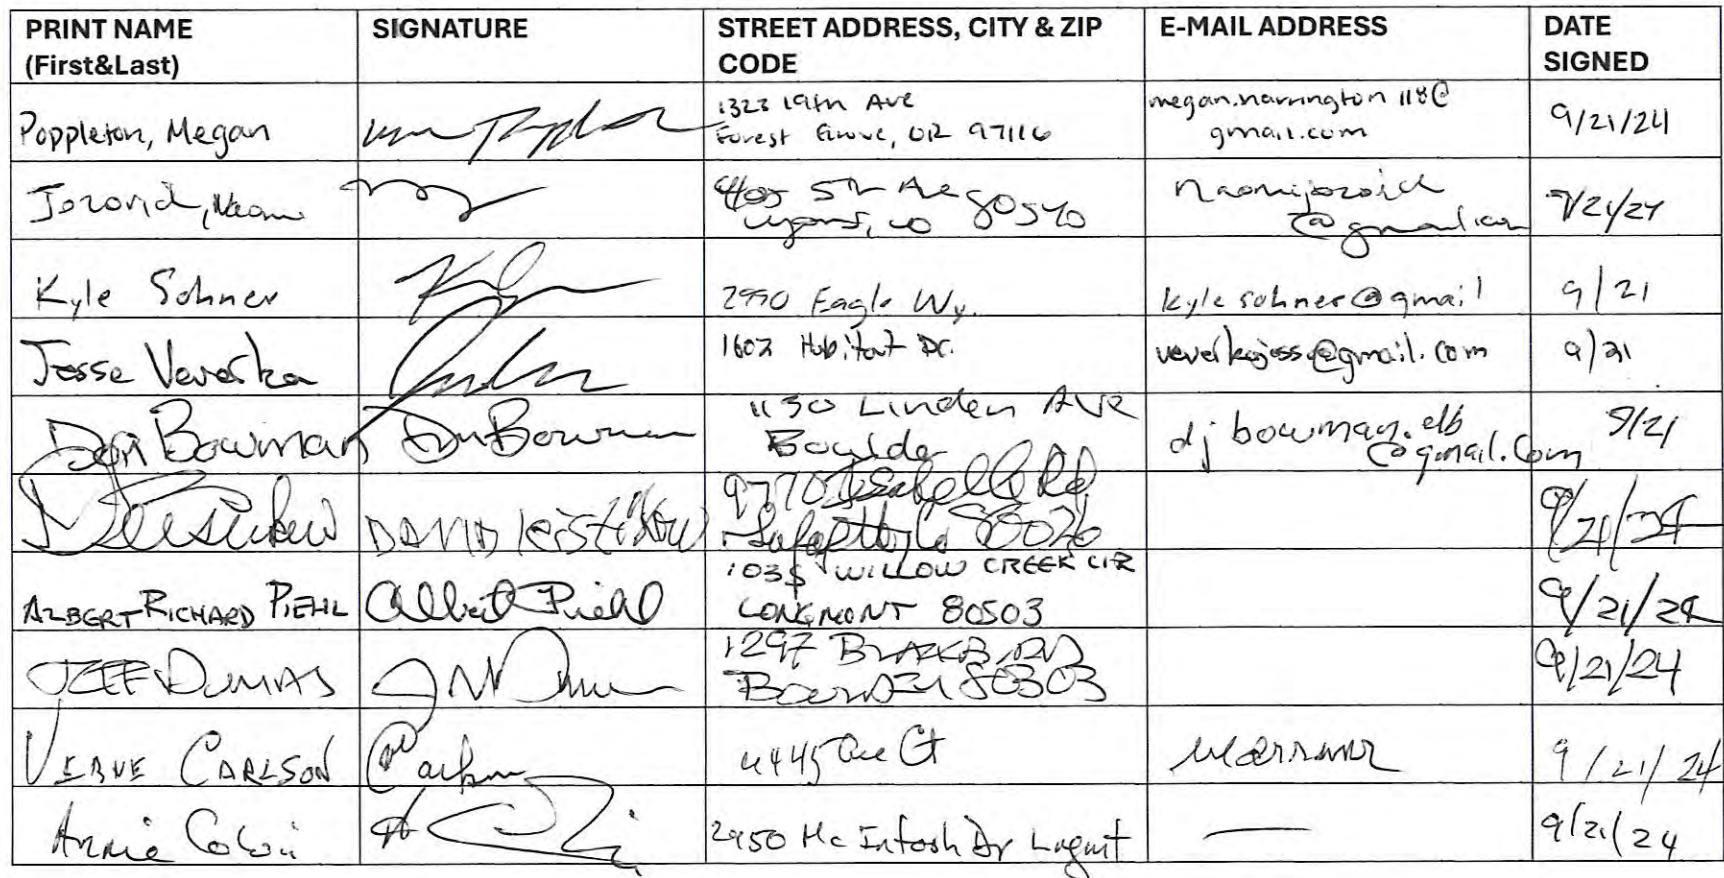 PRINT NAME
(First&Last)
SIGNATURE
STREET ADDRESS, CITY & ZIP
CODE
E-MAIL ADDRESS
DATE
SIGNED
Poppleton, Megan
1323 19th Ave
Forest Grove, OR 97116
megan.harrington 118@
gmail.com
9/21/24
405 5th Ave
Lyons, CO 80540
@gmail.com
9/21/24
Kyle Sohner
2990 Eagle Wy.
kylesohner@gmail
9/21
Jesse Veverka
1602 Habitat Dr.
@gmail.com
9/21
Dan Bowman
Dan Bowman
1130 Linden AVE
Boulder
dj bowman.elb
@gmail.com
9/21
DAVID
9770 Isabelle Rd
Lafayette Co 80026
9/21/24
ALBERT RICHARD PIEHL
Albert Piehl
WILLOW CREEK CIR
LONGMONT 80503
9/21/24
JEFF DUMAS
1297 BLACKBIRD
BOULDER 80303
9/21/24
CARLSON
Carlson
4445 Ct
9/21/24
Annie
2950 McIntosh Dr
—
9/21/24